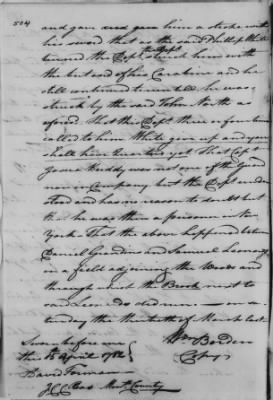 504
and gave and gave him a stroke with
his sword that as the said Phillip White
turned the Dept. struck him with
the butt end of his Carabine and he
still continued to run till he was
struck by the said John North as
aforesd. That this Dept. three or four times
called to him White give up and you
shall have Quarters yet That Capt
Joshua Huddy was not one of the Guard
nor in Company but the Dept under
stood and has no reason to doubt but
that he was then a prisoner in New
York. That the above happened between
Daniel Grandins and Samuel Leonards
in a field adjoining the Woods and
through which the Brook next to
on
day the thirtieth of March last
Wm Borden
Sworn before me
this 15 April 1782
David Forman
Mont County